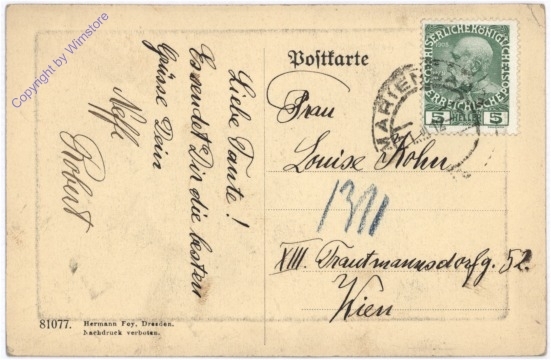 Copyright by Wimstore
Postkarte
Liebe Tante!
Es sendet Dir die besten
Grüsse Dein
Neffe
Robert
KAISERLICHE KÖNIGLICHE
ÖSTERREICHISCHE POST
1908
5 HELLER 5
MARIEN
Frau
Louise Kohn
XIII. Trautmannsdorfg. 52.
Wien
81077.
Hermann Foy, Dresden.
Nachdruck verboten.